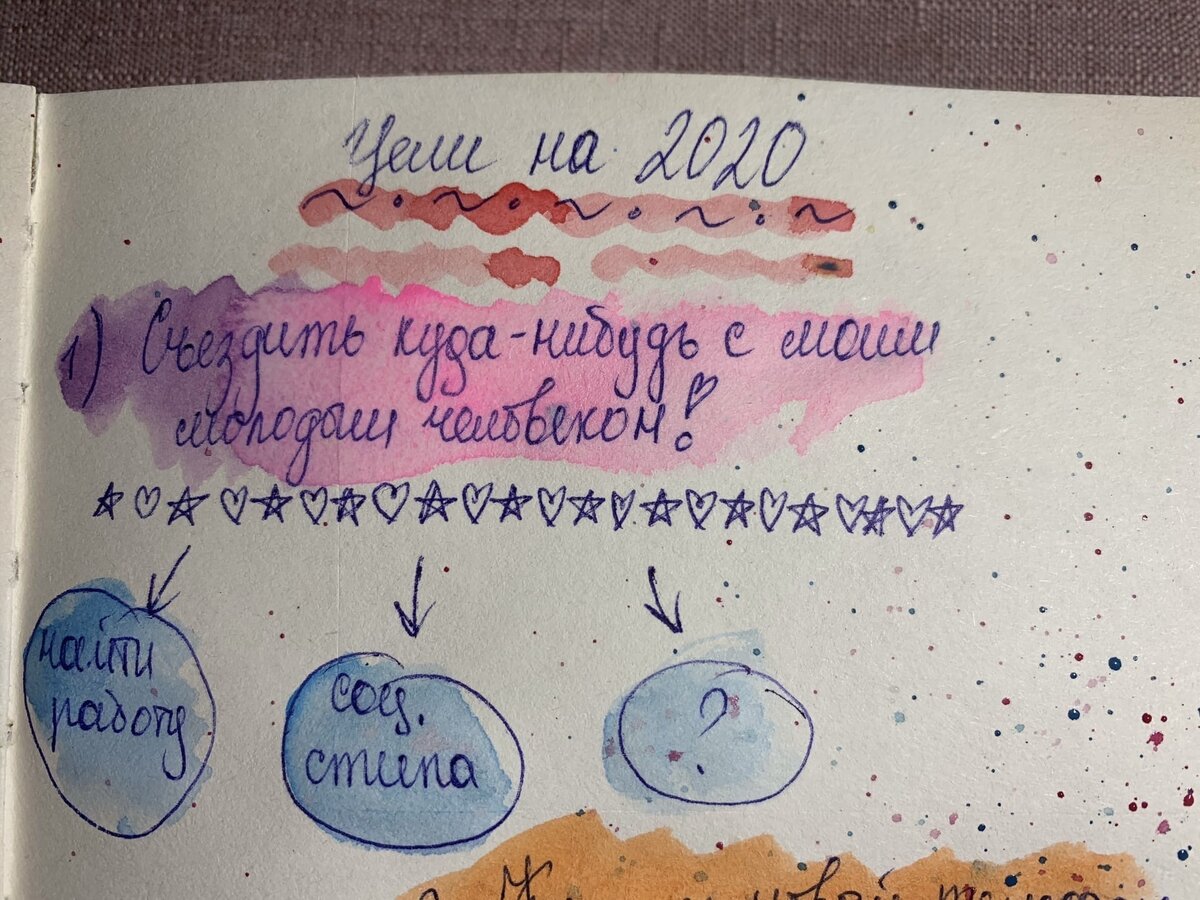 Цели на 2020
1) Съездить куда-нибудь с моим
молодым человеком!
найти
работу
соц.
стипа
?